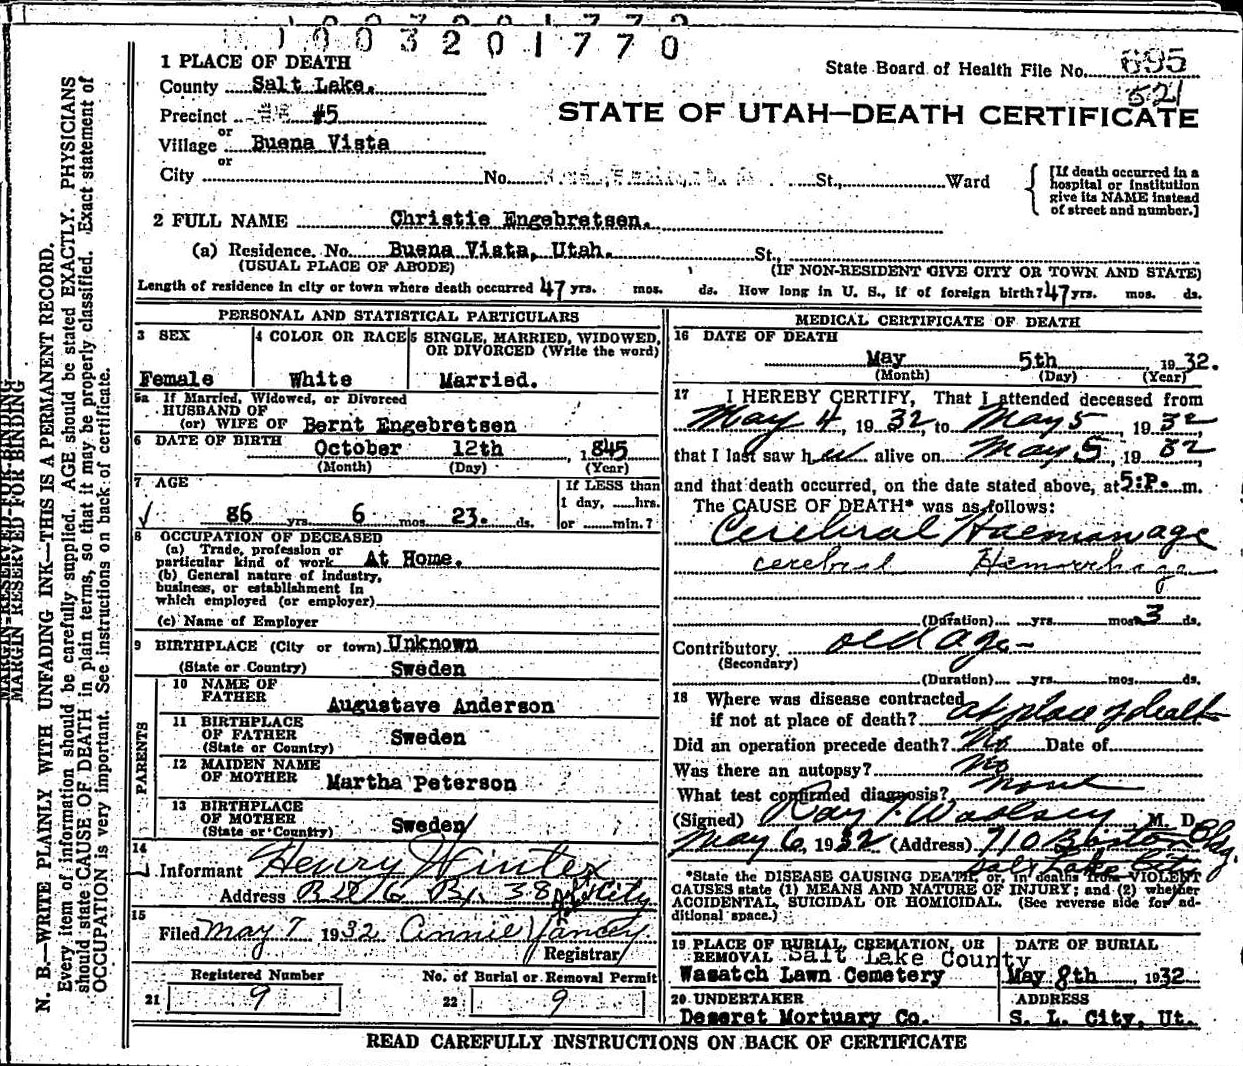 1003201770
1 PLACE OF DEATH
State Board of Health File No. 695
521
County Salt Lake.
STATE OF UTAH—DEATH CERTIFICATE
Precinct #5
or
Village Buena Vista
or
City No. St., Ward
[If death occurred in a
hospital or institution
give its NAME instead
of street and number.]
2 FULL NAME Christie Engebretsen.
(a) Residence. No. Buena Vista, Utah. St.,
(USUAL PLACE OF ABODE) (IF NON-RESIDENT GIVE CITY OR TOWN AND STATE)
Length of residence in city or town where death occurred 47 yrs. mos. ds. How long in U. S., if of foreign birth? 47 yrs. mos. ds.
PERSONAL AND STATISTICAL PARTICULARS
3 SEX
Female
4 COLOR OR RACE
White
5 SINGLE, MARRIED, WIDOWED,
OR DIVORCED (Write the word)
Married.
5a If Married, Widowed, or Divorced
HUSBAND OF
(or) WIFE OF Bernt Engebretsen
6 DATE OF BIRTH
October 12th , 1845
(Month) (Day) (Year)
7 AGE
86 yrs. 6 mos. 23. ds.
If LESS than
1 day, hrs.
or min.?
8 OCCUPATION OF DECEASED
(a) Trade, profession or
particular kind of work At Home.
(b) General nature of industry,
business, or establishment in
which employed (or employer)
(c) Name of Employer
9 BIRTHPLACE (City or town) Unknown
(State or Country) Sweden
PARENTS
10 NAME OF
FATHER Augustave Anderson
11 BIRTHPLACE
OF FATHER Sweden
(State or Country)
12 MAIDEN NAME
OF MOTHER Martha Peterson
13 BIRTHPLACE
OF MOTHER
(State or Country) Sweden
14
Informant Henry Winter
Address R D 6 Bx. 38 City
15
Filed May 7 1932 Annie Yancey
Registrar
Registered Number
21 9
No. of Burial or Removal Permit
22 9
MEDICAL CERTIFICATE OF DEATH
16 DATE OF DEATH
May 5th 1932.
(Month) (Day) (Year)
17 I HEREBY CERTIFY, That I attended deceased from
May 4, 1932, to May 5, 1932,
that I last saw her alive on May 5, 1932,
and that death occurred, on the date stated above, at 5:P. m.
The CAUSE OF DEATH* was as follows:
Cerebral Haemorrage
cerebral Hemorrhage
(Duration) yrs. mos. 3 ds.
Contributory old age
(Secondary)
(Duration) yrs. mos. ds.
18 Where was disease contracted
if not at place of death? at place of death
Did an operation precede death? No Date of
Was there an autopsy? no
What test confirmed diagnosis? none
(Signed) Ray T. Woolsey M. D.
May 6, 1932 (Address) 710 Boston Bldg.
Salt Lake City
*State the DISEASE CAUSING DEATH, or, in deaths from VIOLENT
CAUSES state (1) MEANS AND NATURE OF INJURY; and (2) whether
ACCIDENTAL, SUICIDAL OR HOMICIDAL. (See reverse side for ad-
ditional space.)
19 PLACE OF BURIAL, CREMATION, OR
REMOVAL Salt Lake County
Wasatch Lawn Cemetery
DATE OF BURIAL
May 8th 1932
20 UNDERTAKER
Deseret Mortuary Co.
ADDRESS
S. L. City, Ut.
READ CAREFULLY INSTRUCTIONS ON BACK OF CERTIFICATE
MARGIN RESERVED FOR BINDING
MARGIN RESERVED FOR BINDING
N. B.—WRITE PLAINLY WITH UNFADING INK—THIS IS A PERMANENT RECORD.
Every item of information should be carefully supplied. AGE should be stated EXACTLY. PHYSICIANS
should state CAUSE OF DEATH in plain terms, so that it may be properly classified. Exact statement of
OCCUPATION is very important. See instructions on back of certificate.